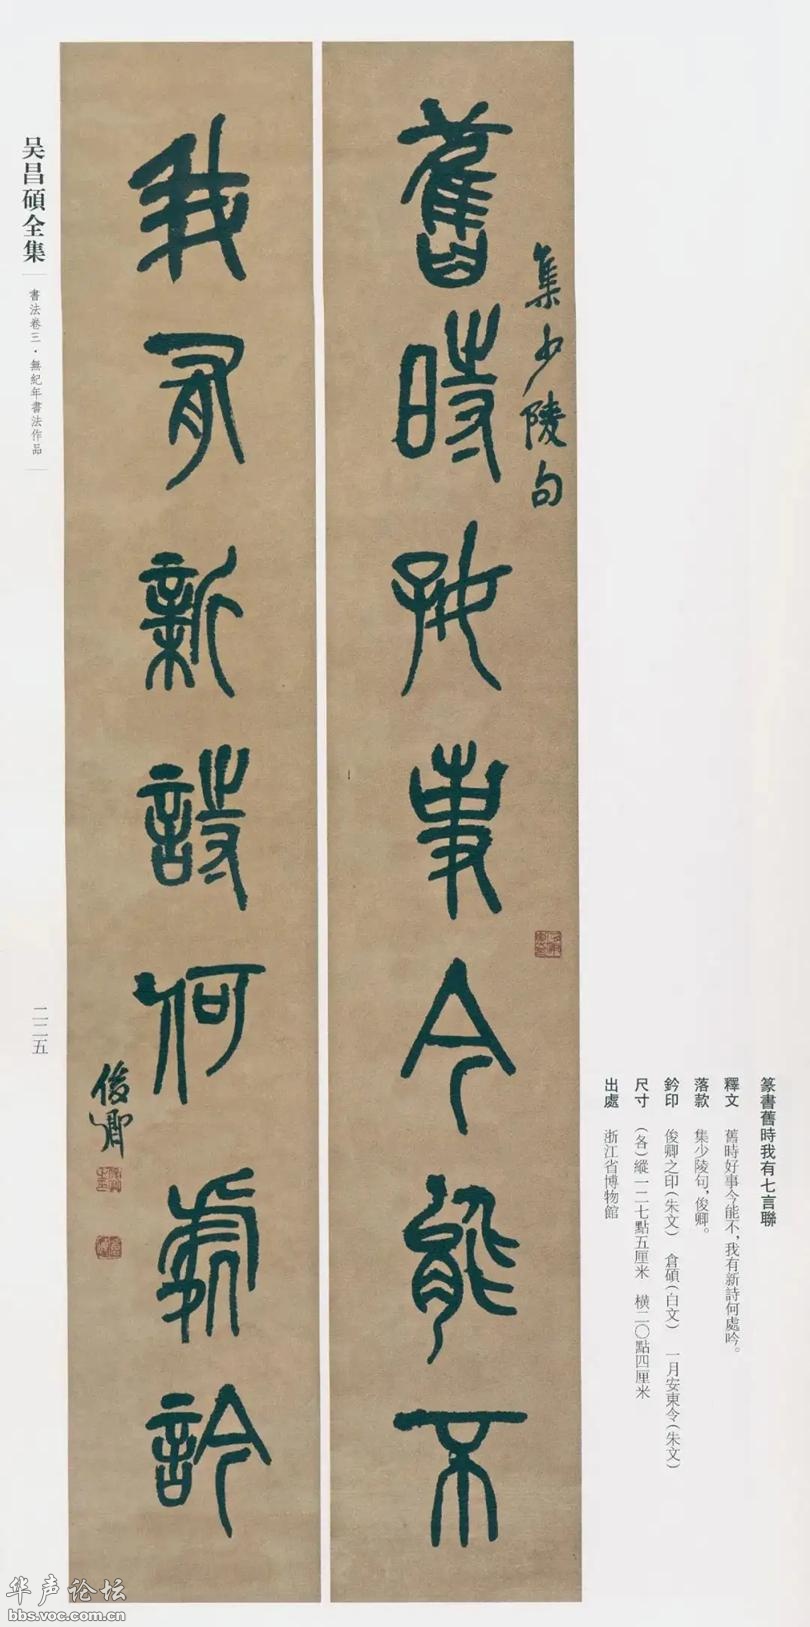 舊時好事今能不
集少陵句
我有新詩何處訡
俊卿
吴昌碩全集
書法卷三·無紀年書法作品
二二五
篆書舊時我有七言聯
釋文 舊時好事今能不，我有新詩何處吟。
落款 集少陵句，俊卿。
鈐印 俊卿之印（朱文） 倉碩（白文） 一月安東令（朱文）
尺寸 （各）縱一二七點五厘米 橫二〇點四厘米
出處 浙江省博物館
华声论坛
bbs.voc.com.cn